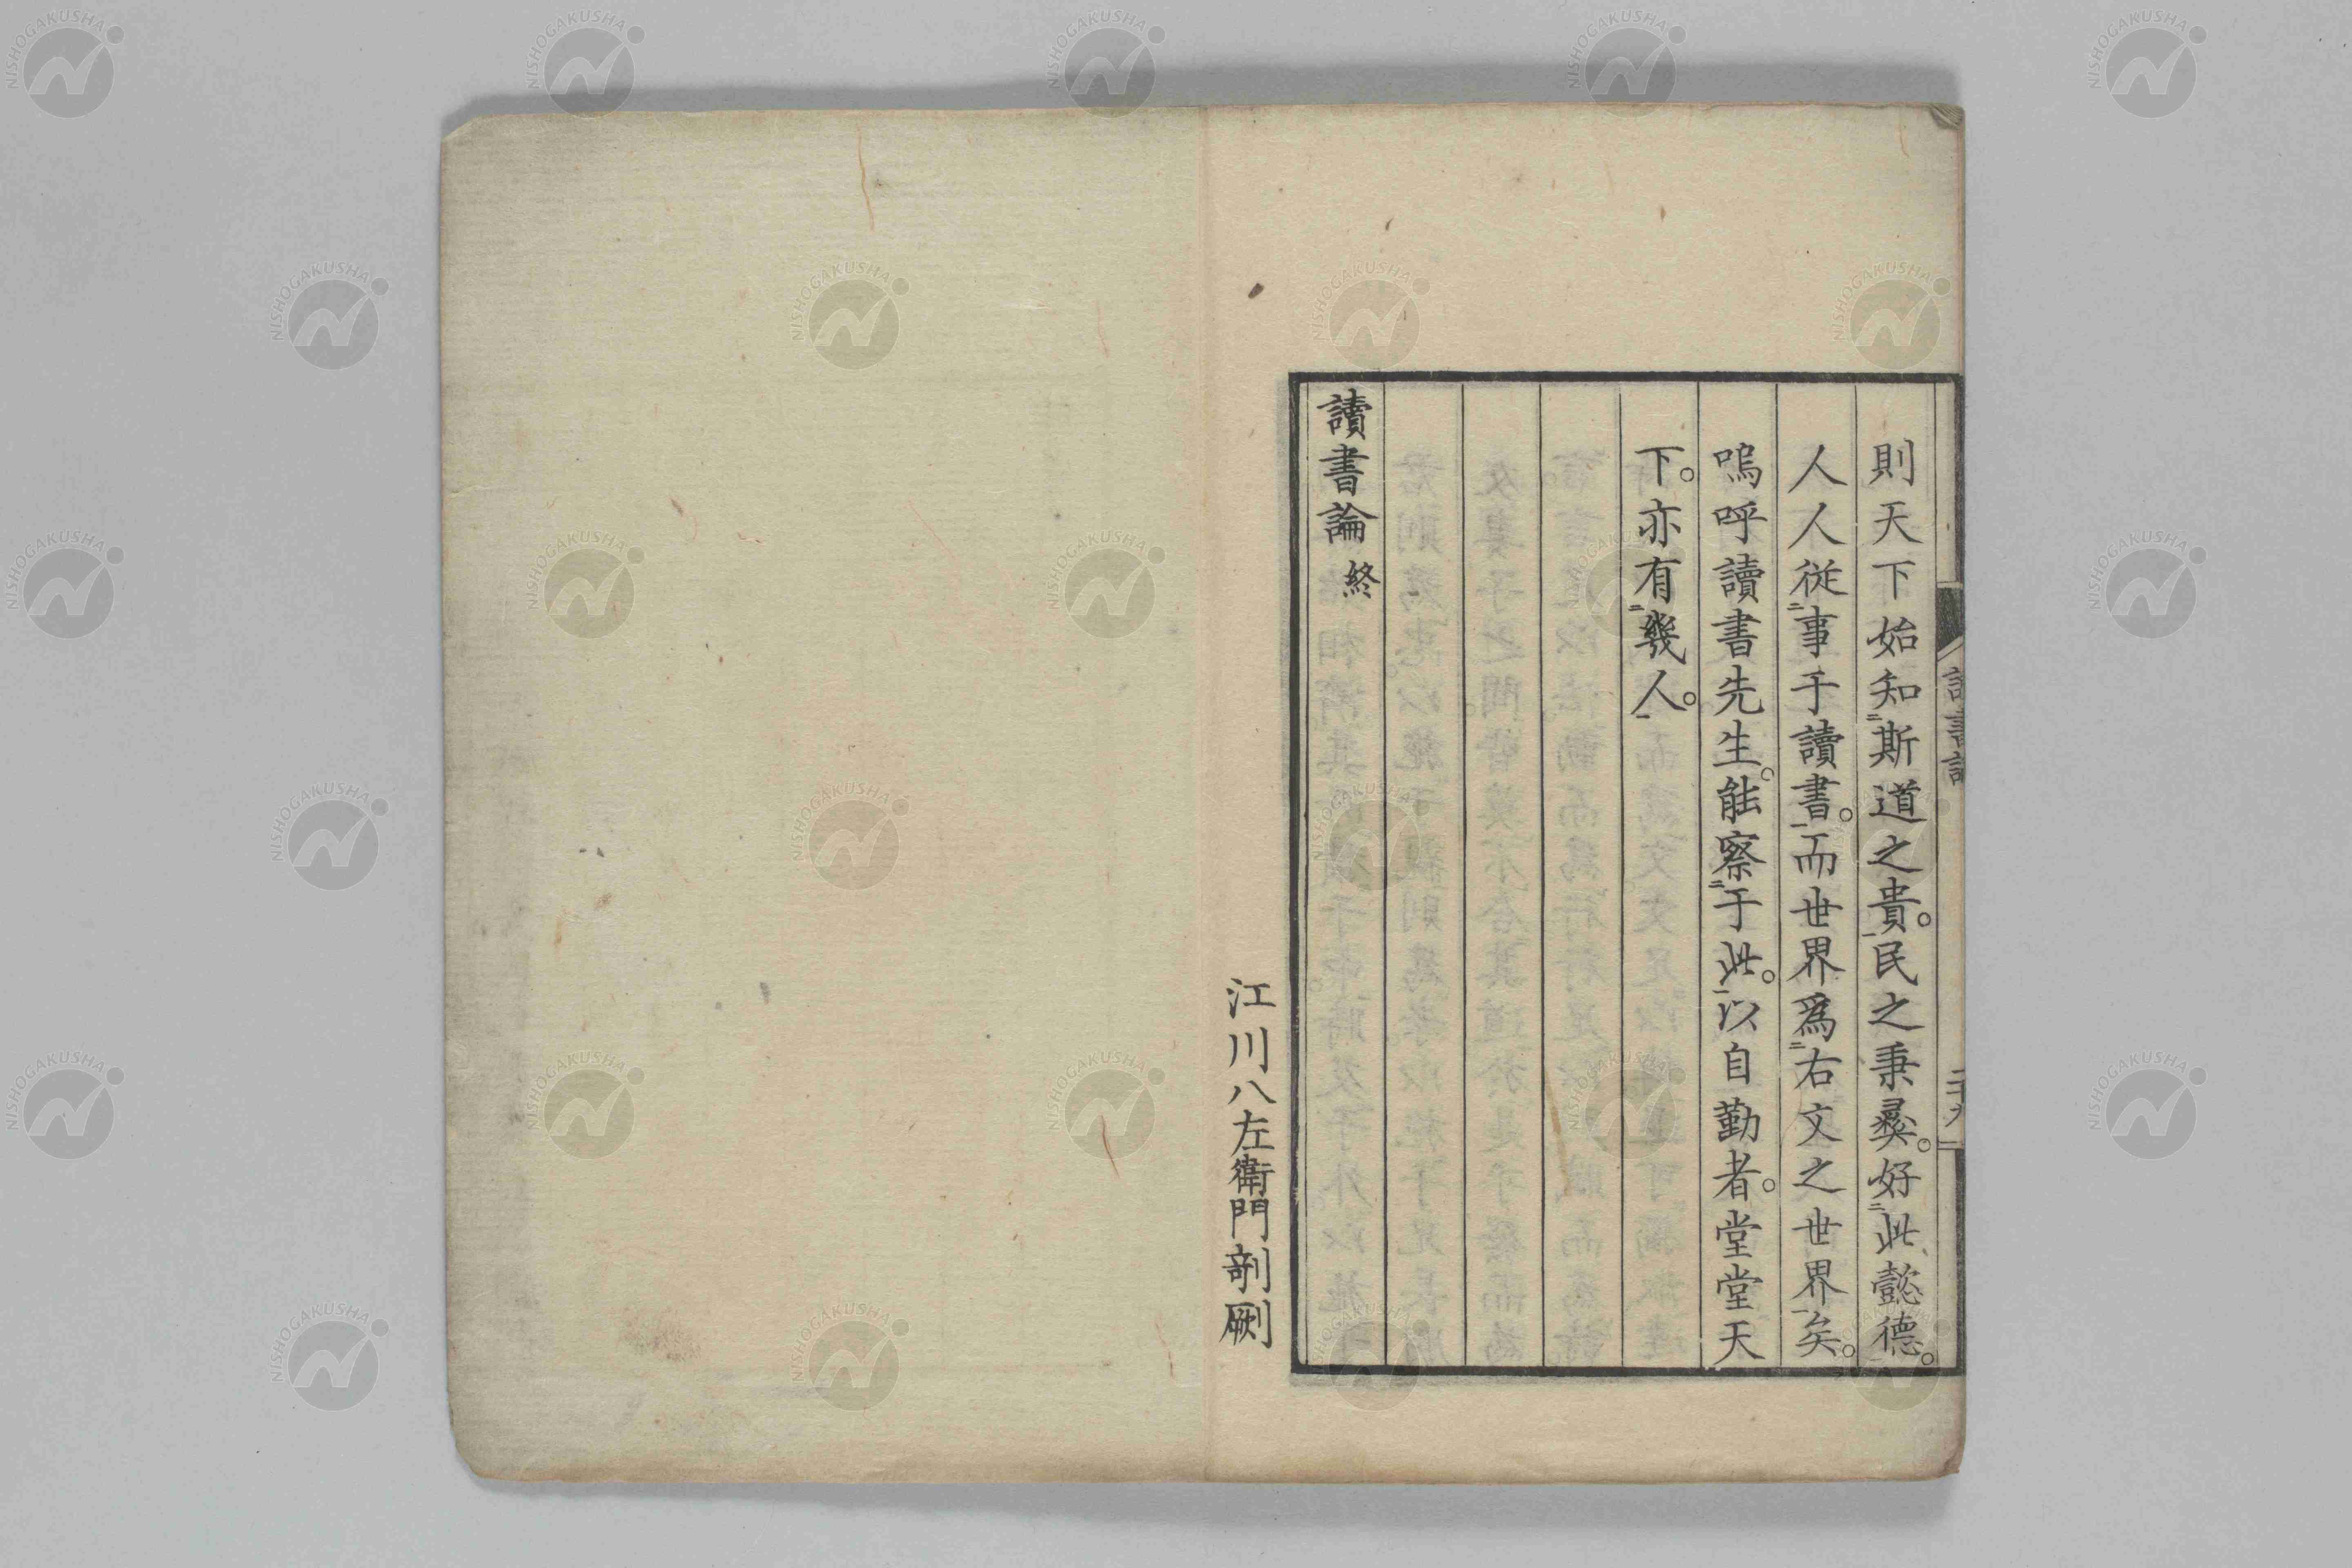 則天下始知斯道之貴。民之秉彛。好此懿德。
人人従事于讀書。而世界爲右文之世界矣。
嗚呼讀書先生。能察于此。以自勤者。堂堂天
下。亦有幾人。
讀書論終
江川八左衛門剞劂
二十九
NISHOGAKUSHA